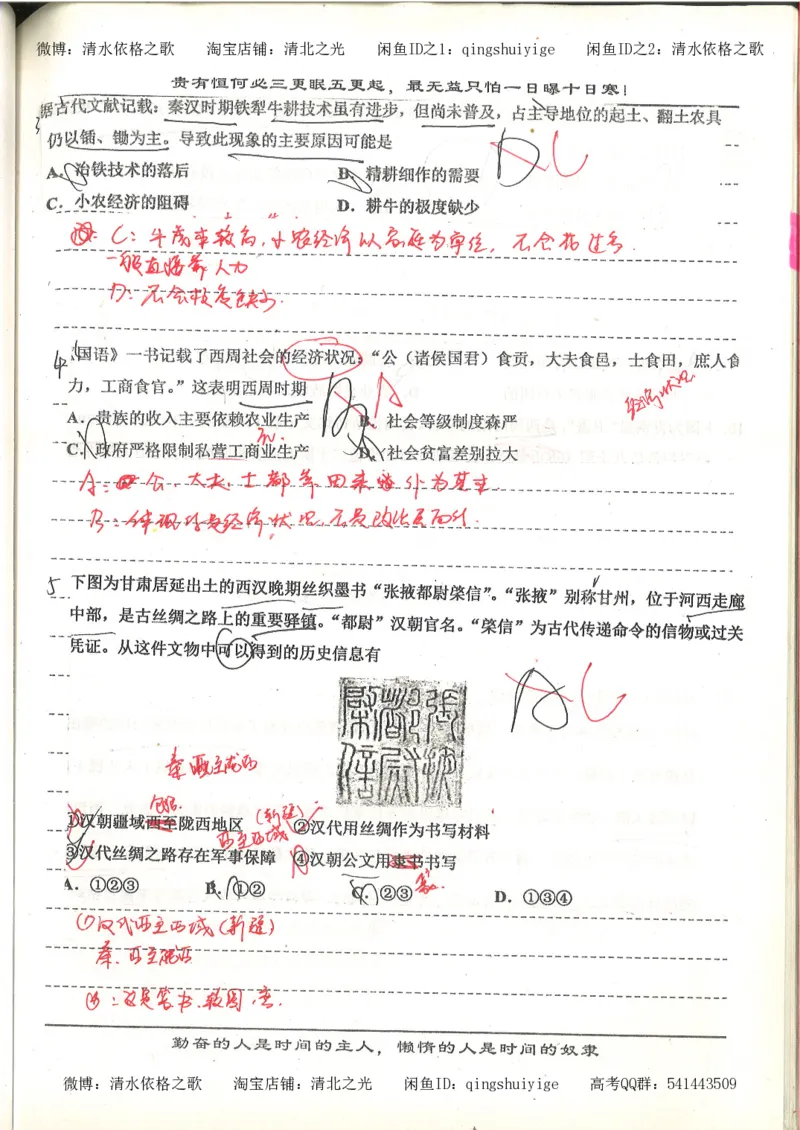 微博：清水依格之歌 淘宝店铺：清北之光 闲鱼ID之1：qingshuiyige 闲鱼ID之2：清水依格之歌
贵有恒何必三更眠五更起，最无益只怕一日曝十日寒！
据古代文献记载：秦汉时期铁犁牛耕技术虽有进步，但尚未普及，占主导地位的起土、翻土农具
仍以锸、锄为主。导致此现象的主要原因可能是
D C
A. 冶铁技术的落后 B. 精耕细作的需要
C. 小农经济的阻碍 D. 耕牛的极度缺少
C：牛成本较高，小农经济以家庭为单位，不会花过多
一般直接靠人力
D：不会极度缺少.
4.《国语》一书记载了西周社会的经济状况：“公（诸侯国君）食贡，大夫食邑，士食田，庶人食
力，工商食官。”这表明西周时期
A
经济状况
A. 贵族的收入主要依赖农业生产 B. 社会等级制度森严
C. 政府严格限制私营工商业生产 D. 社会贫富差别拉大
无.
A：公、大夫、士都等田来作为基
B：体现的是经济状况，不是政治层面什.
5 下图为甘肃居延出土的西汉晚期丝织墨书“张掖都尉棨信”。“张掖”别称甘州，位于河西走廊
中部，是古丝绸之路上的重要驿镇。“都尉”汉朝官名。“棨信”为古代传递命令的信物或过关
凭证。从这件文物中可以得到的历史信息有
A C
张掖都尉棨信
秦西至陇西
包括
(新疆)
西至西域
①汉朝疆域西至陇西地区 ②汉代用丝绸作为书写材料
③汉代丝绸之路存在军事保障 ④汉朝公文用隶书书写
篆.
A. ①②③ B. ①② C. ②③ D. ①③④
①汉代西至西域(新疆)
秦. 西至陇西
④：这是篆书.
勤奋的人是时间的主人，懒惰的人是时间的奴隶
微博：清水依格之歌 淘宝店铺：清北之光 闲鱼ID：qingshuiyige 高考QQ群：541443509